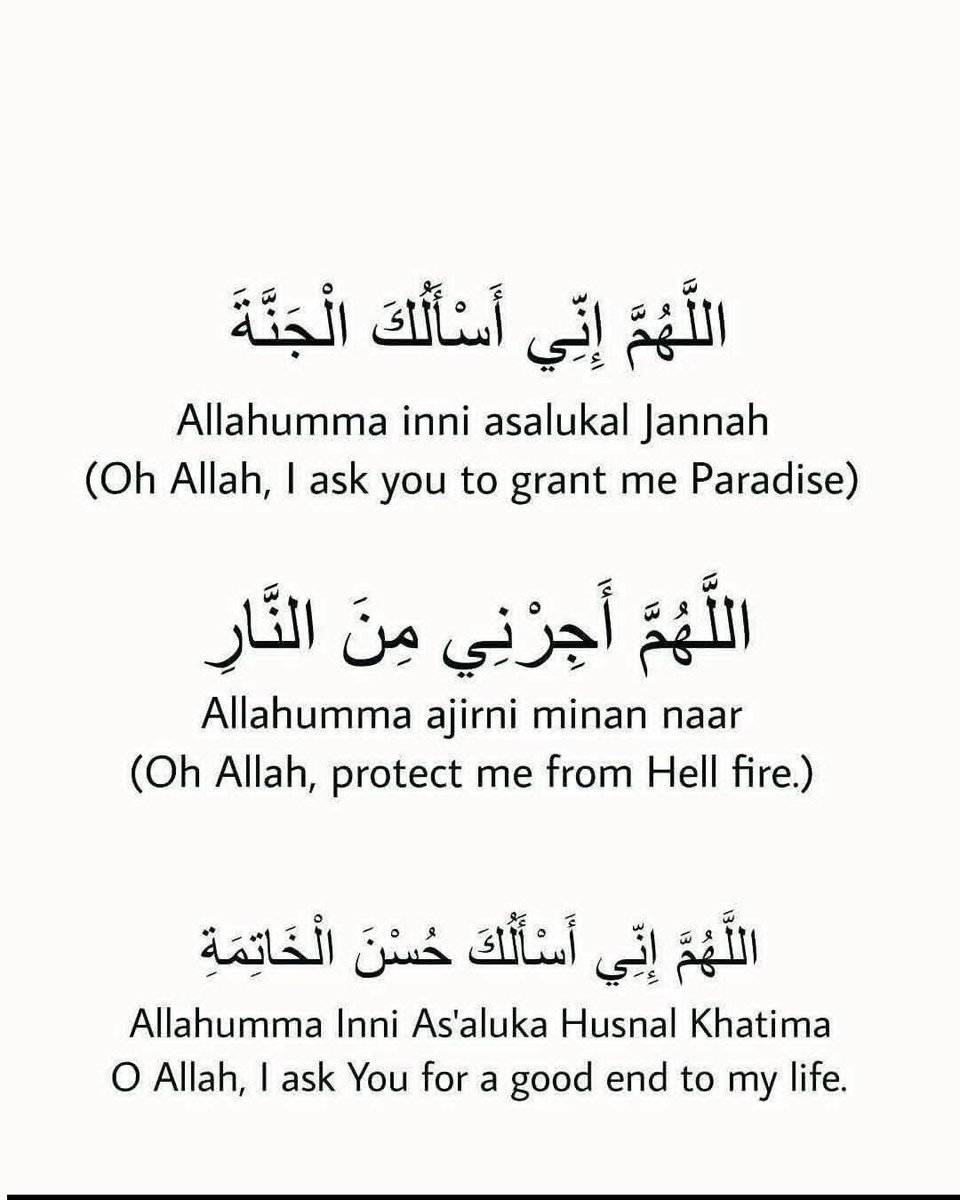 اللَّهُمَّ إِنِّي أَسْأَلُكَ الْجَنَّةَ
Allahumma inni asalukal Jannah
(Oh Allah, I ask you to grant me Paradise)
اللَّهُمَّ أَجِرْنِي مِنَ النَّارِ
Allahumma ajirni minan naar
(Oh Allah, protect me from Hell fire.)
اللَّهُمَّ إِنِّي أَسْأَلُكَ حُسْنَ الْخَاتِمَةِ
Allahumma Inni As'aluka Husnal Khatima
O Allah, I ask You for a good end to my life.